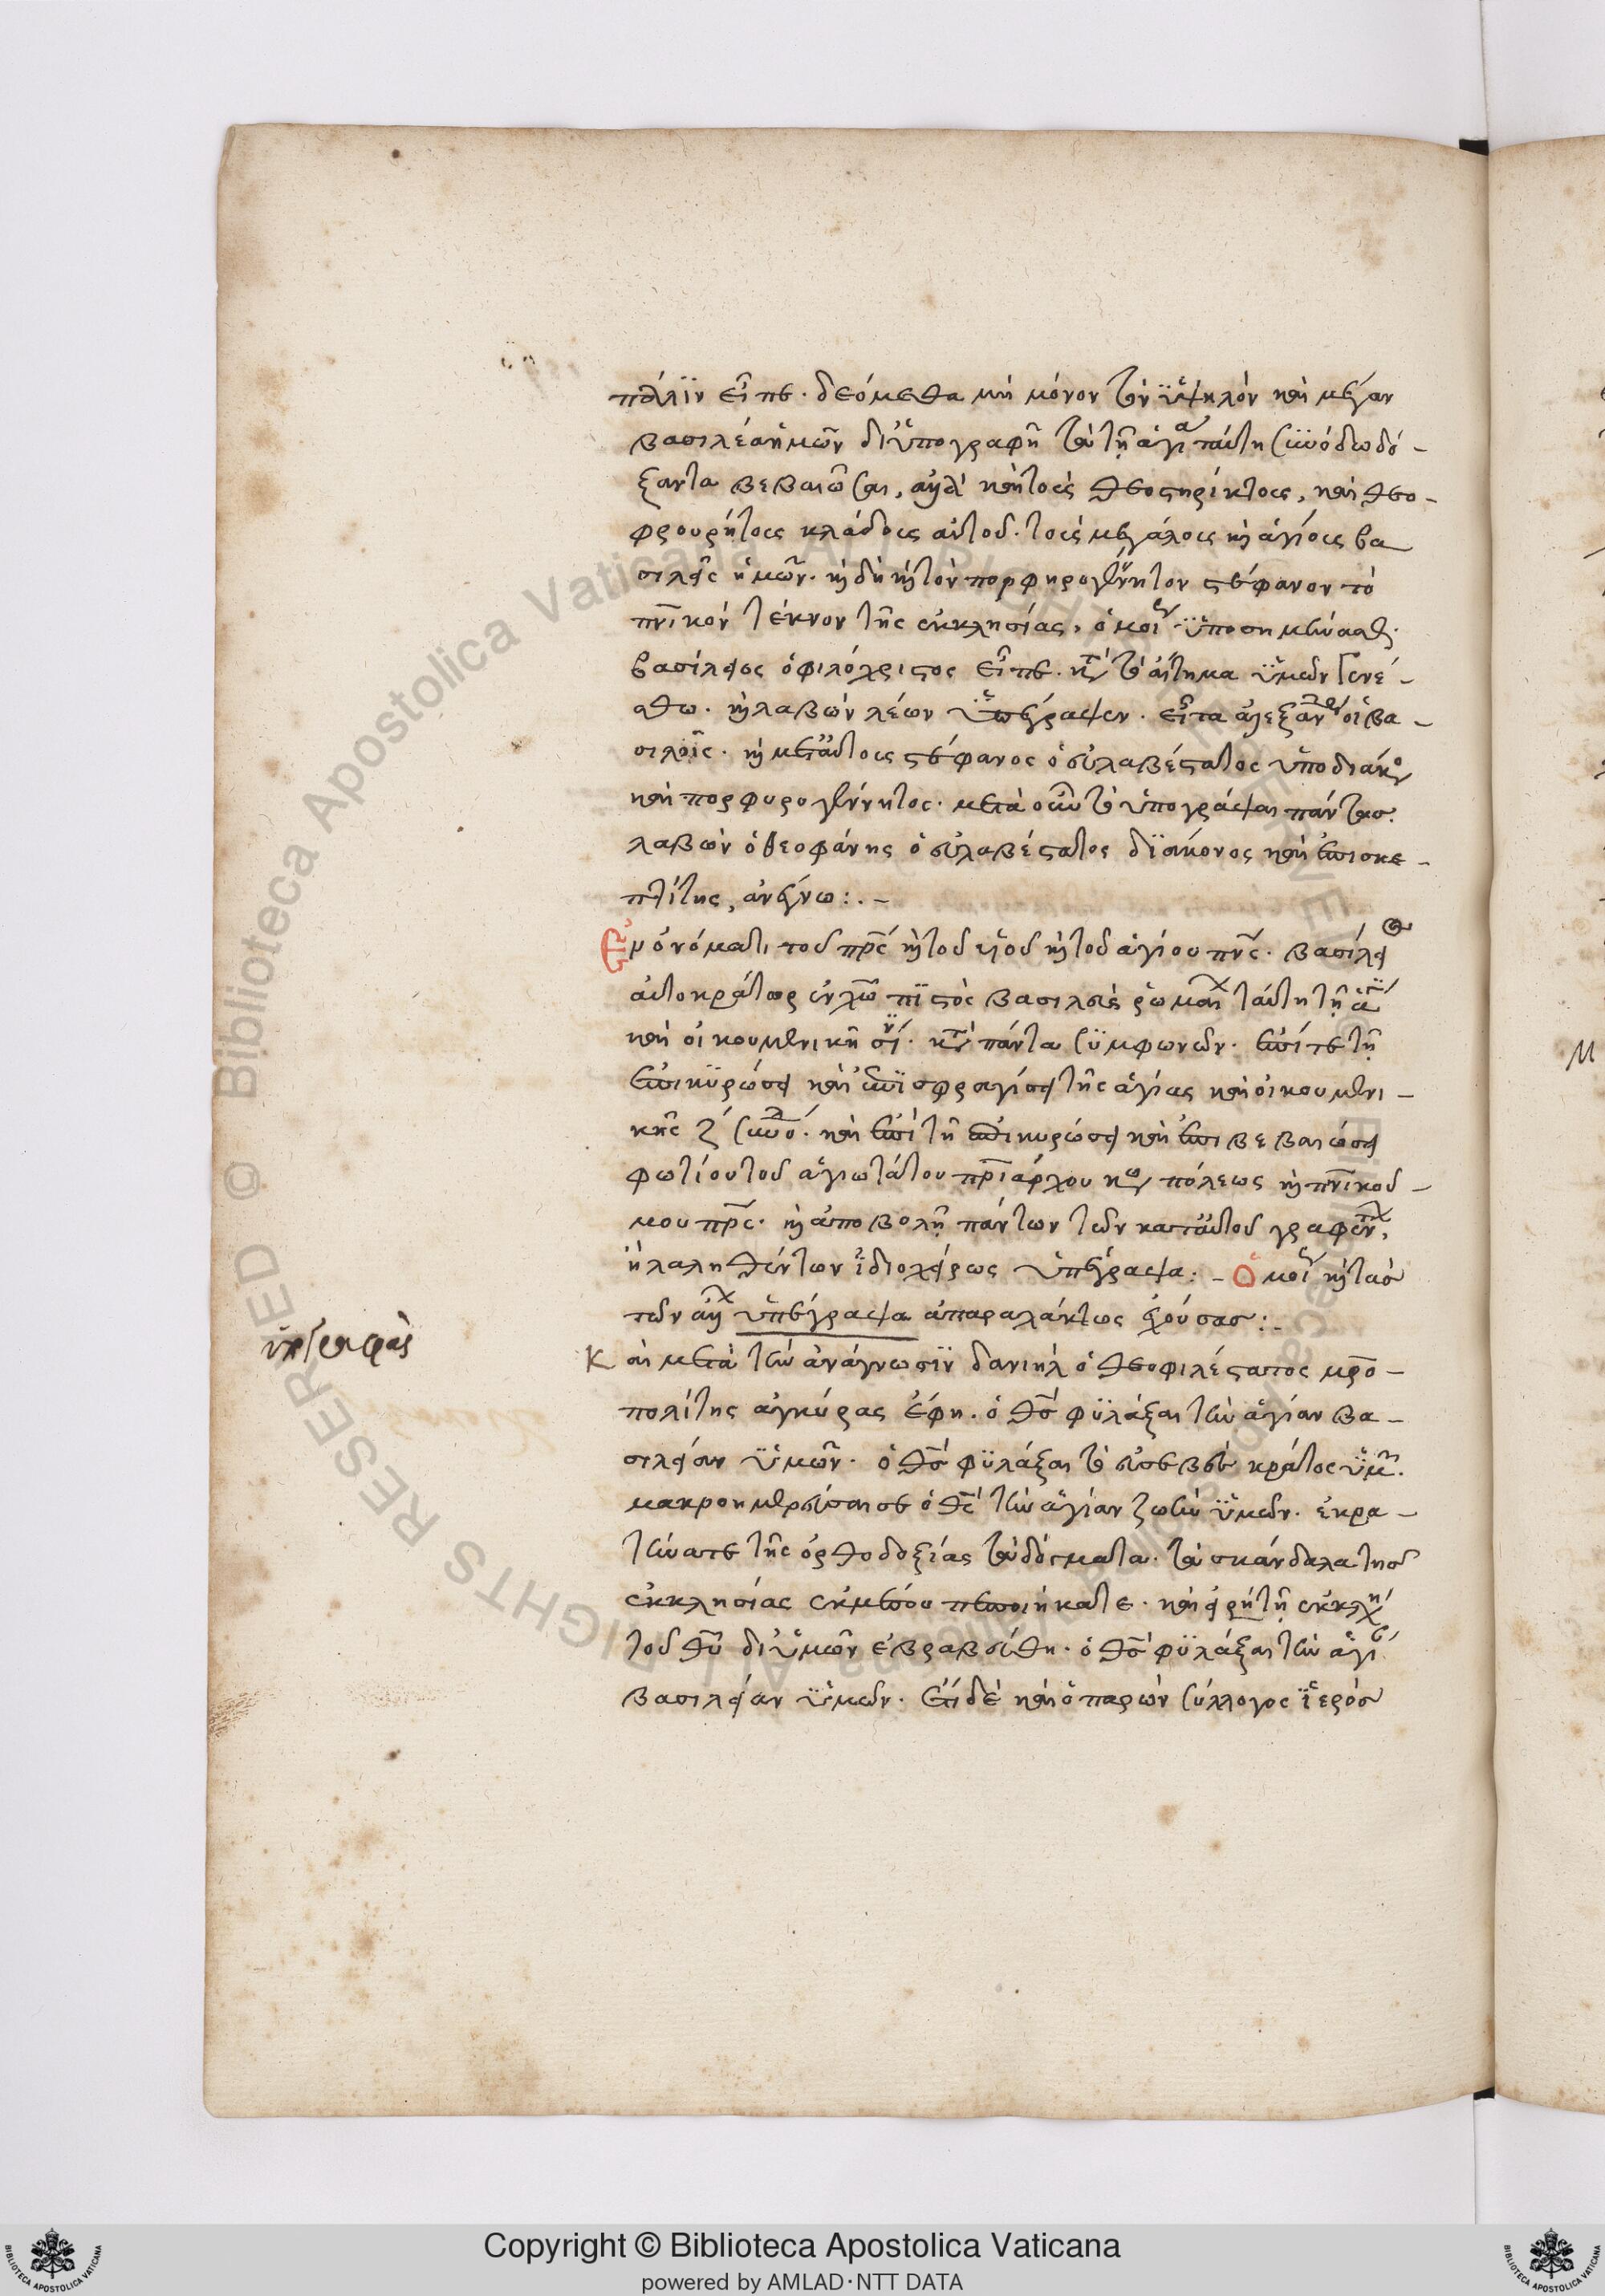 πάλϊν εἶπε. δεόμεθα μὴ μόνον τὸν ὑψηλὸν καὶ μέγαν
βασιλέα ἡμῶν δι ὑπογραφῆ τὰ τῆ ἁγί ταύτη συνόδω δό -
ξαντα βεβαιῶσαι, ἀλλὰ καὶ τοὶς θεοστηρίκτοις, καὶ θεο -
φρουρήτοις κλάδοις αὐτοῦ. τοὶς μεγάλοις καὶ ἁγίοις βα
σιλεῖς ἡμῶν. καὶ δὴ καὶ τὸν πορφηρογέννητον στέφανον τὸ
πνικὸν τέκνον τῆς ἐκκλησίας, ὁμοί ὑποσημήνασθ.
βασίλειος ὁ φιλόχριστος εἶπε. κτ τὸ αἴτημα ὑμῶν γενέ -
σθω. καὶ λαβὼν λέων ὑπέγραψεν. εἶτα ἀλέξανδ οἱ βα -
σιλεῖς. καὶ μετ αὐτοὶς στέφανος ὁ εὐλαβέστατος ὑποδιάκο
καὶ πορφυρογέννητος. μετὰ οὖν τὸ ὑπογράψαι πάντας.
λαβὼν ὁ θεοφάνης ὁ εὐλαβέστατος δϊάκονος καὶ ἐπισκε -
πτίτης, ἀνέγνω :. -
Ἐν ὀνόματι τοῦ πρς καὶ τοῦ υἱοῦ καὶ τοῦ ἁγίου πνς. βασίλει
αὐτοκράτωρ ἐν χῶ πϊστὸς βασιλεὺς ρωμαί ταύτη τῆ ἁ
καὶ οἰκουμενικῆ σύ. κτ πάντα σϋμφωνῶν. ἐπί τε τῆ
ἐπικϋρώσει καὶ ἐπϊσφραγίσει τῆς ἁγίας καὶ οἰκουμενι -
κῆς ζ συνό. καὶ ἐπὶ τῆ ἐπικυρώσει καὶ ἐπιβεβαιώσει
φωτίου τοῦ ἁγιωτάτου πριάρχου κω πόλεως καὶ πνικοῦ -
μου πρς. καὶ ἀποβολῆ πάντων τῶν κατ αὐτοῦ γραφέν,
ἢ λαληθέντων ἰδιοχείρως ὑπέγραψα : - Ὁμοί καὶ τὰσ
τῶν ἀλλ ὑπέγραψα ἀπαραλάκτως ἐχούσας : -
ὑπογραφὰς
Καὶ μετὰ τὴν ἀνάγνωσϊν δανιὴλ ὁ θεοφιλέστατος μρο -
πολίτης ἀγκύρας ἔφη. ὁ θσ φϋλάξαι τὴν ἁγίαν βα -
σιλείαν ὑμῶν. ὁ θσ φϋλάξαι τὸ εὐσεβὲς κράτος ὑμ.
μακροημερεύσαι σε ὁ θς τὴν ἁγίαν ζωὴν ὑμῶν. ἐκρα -
τύνατε τῆς ὀρθοδοξίας τὰ δόγματα. τὰ σκάνδαλα τῆσ
ἐκκλησίας ἐκμέσου πεποιήκατε. καὶ εἰρήτῆ ἐκκλη
τοῦ θυ δι ὑμῶν ἐβραβεύθη. ὁ θσ φϋλάξαι τὴν ἁγί
βασιλείαν ὑμῶν. ἔτι δὲ καὶ ὁ παρὼν σύλλογος ἱερόσ
Copyright © Biblioteca Apostolica Vaticana
powered by AMLAD·NTT DATA